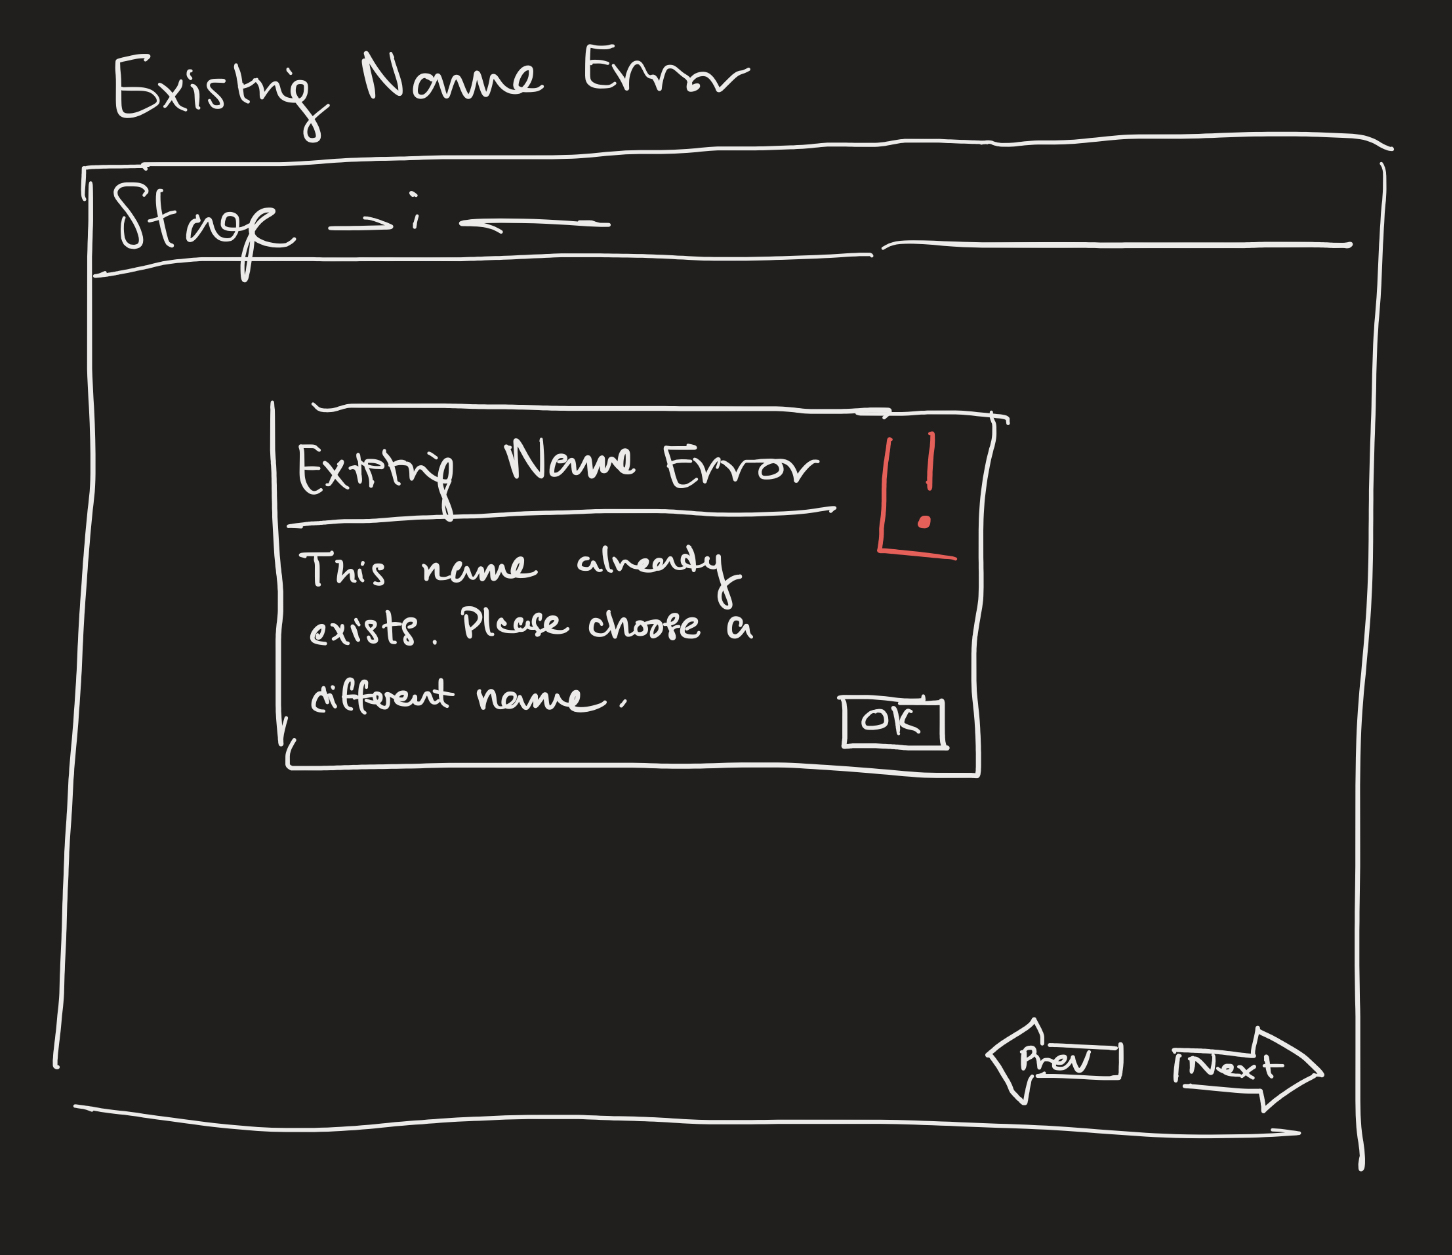 Existing Name Error
Stage → i ←
Existing Name Error !
This name already
exists. Please choose a
different name.
OK
Prev Next